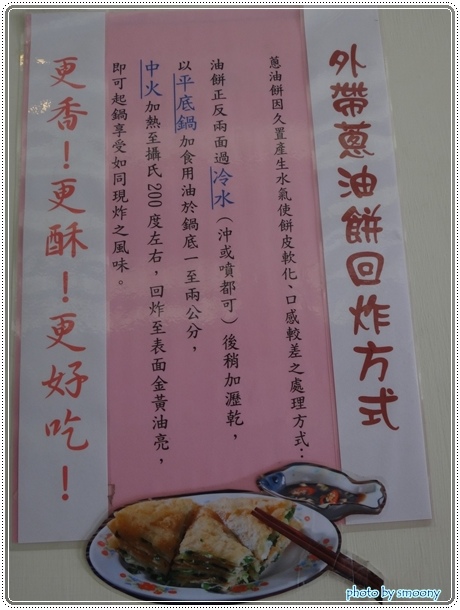 外帶蔥油餅回炸方式
蔥油餅因久置產生水氣使餅皮軟化、口感較差之處理方式：
油餅正反兩面過冷水（沖或噴都可）後稍加瀝乾，
以平底鍋加食用油於鍋底一至兩公分，
中火加熱至攝氏200度左右，回炸至表面金黃油亮，
即可起鍋享受如同現炸之風味。
更香！更酥！更好吃！
photo by smoony